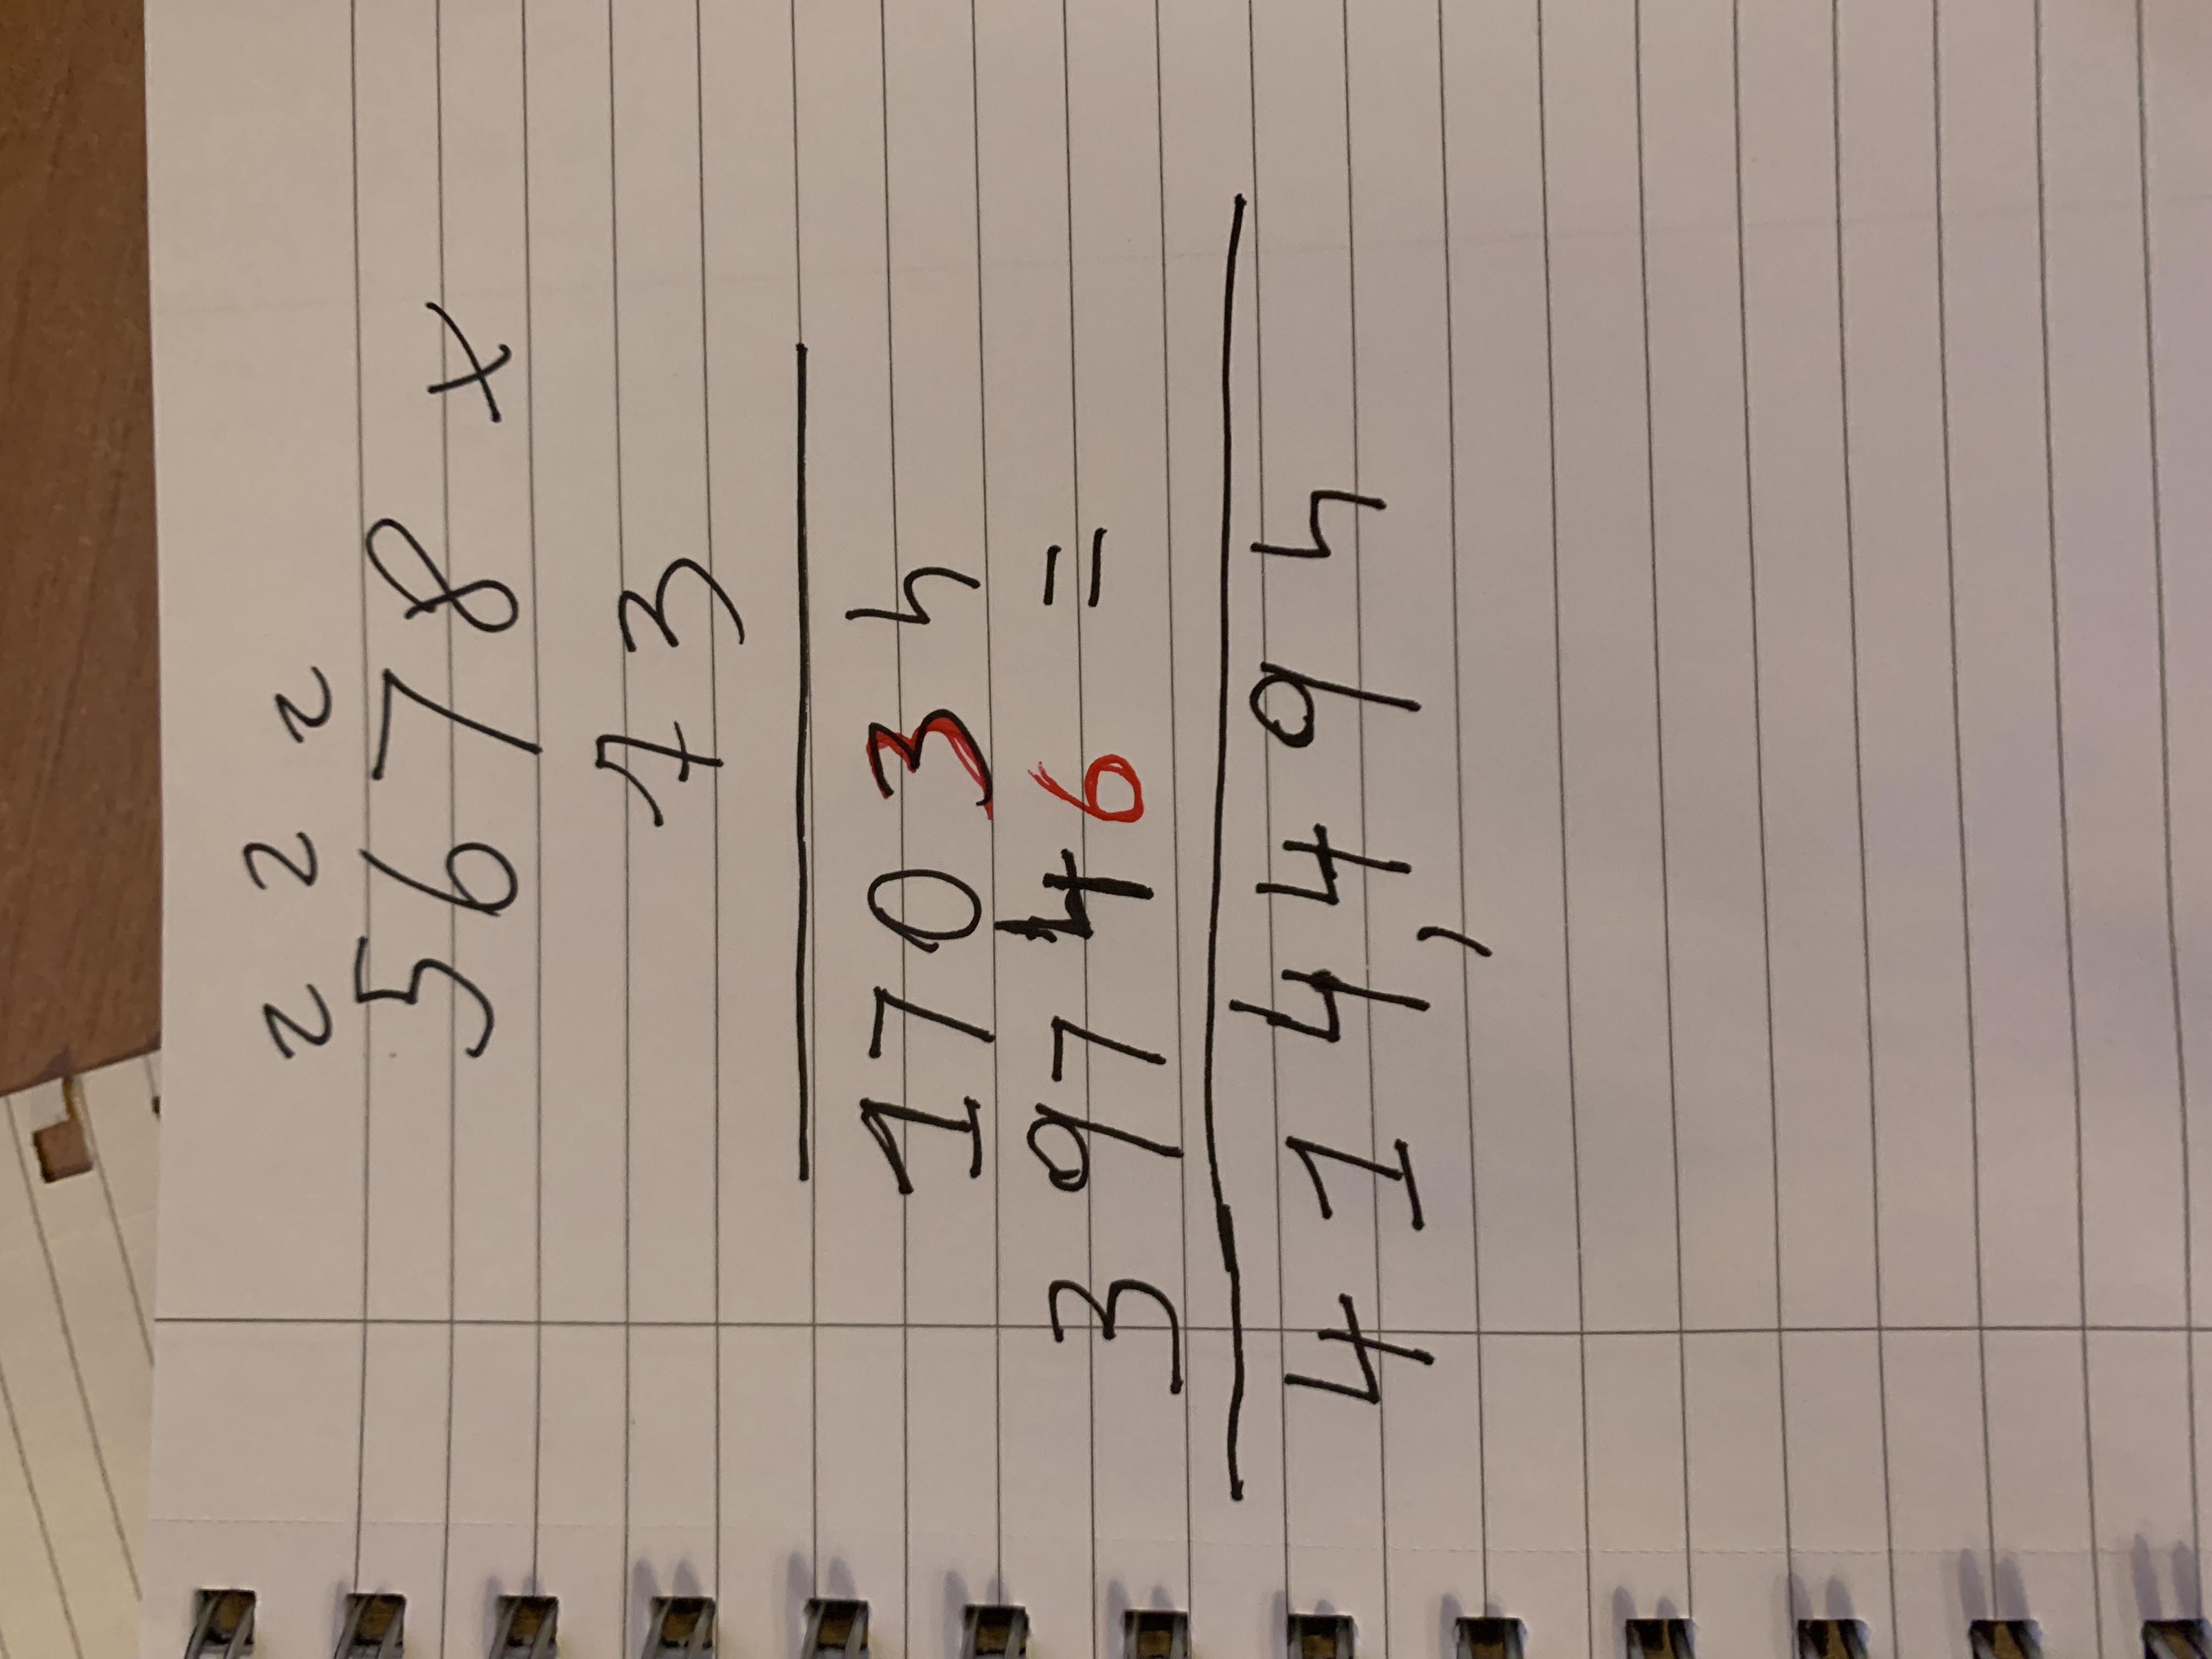 2 2 2
5678 x
73
17034
39746=
414,494